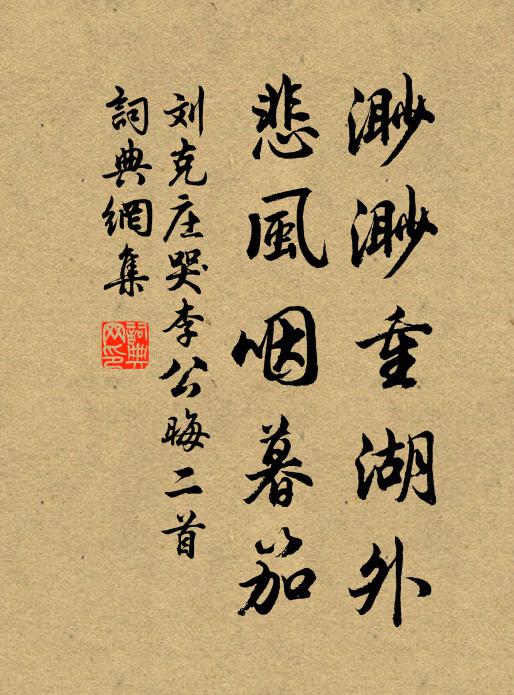 渺渺重湖外
悲風咽暮笳
刘克庄哭李公晦二首
詞典網集
詞典网印